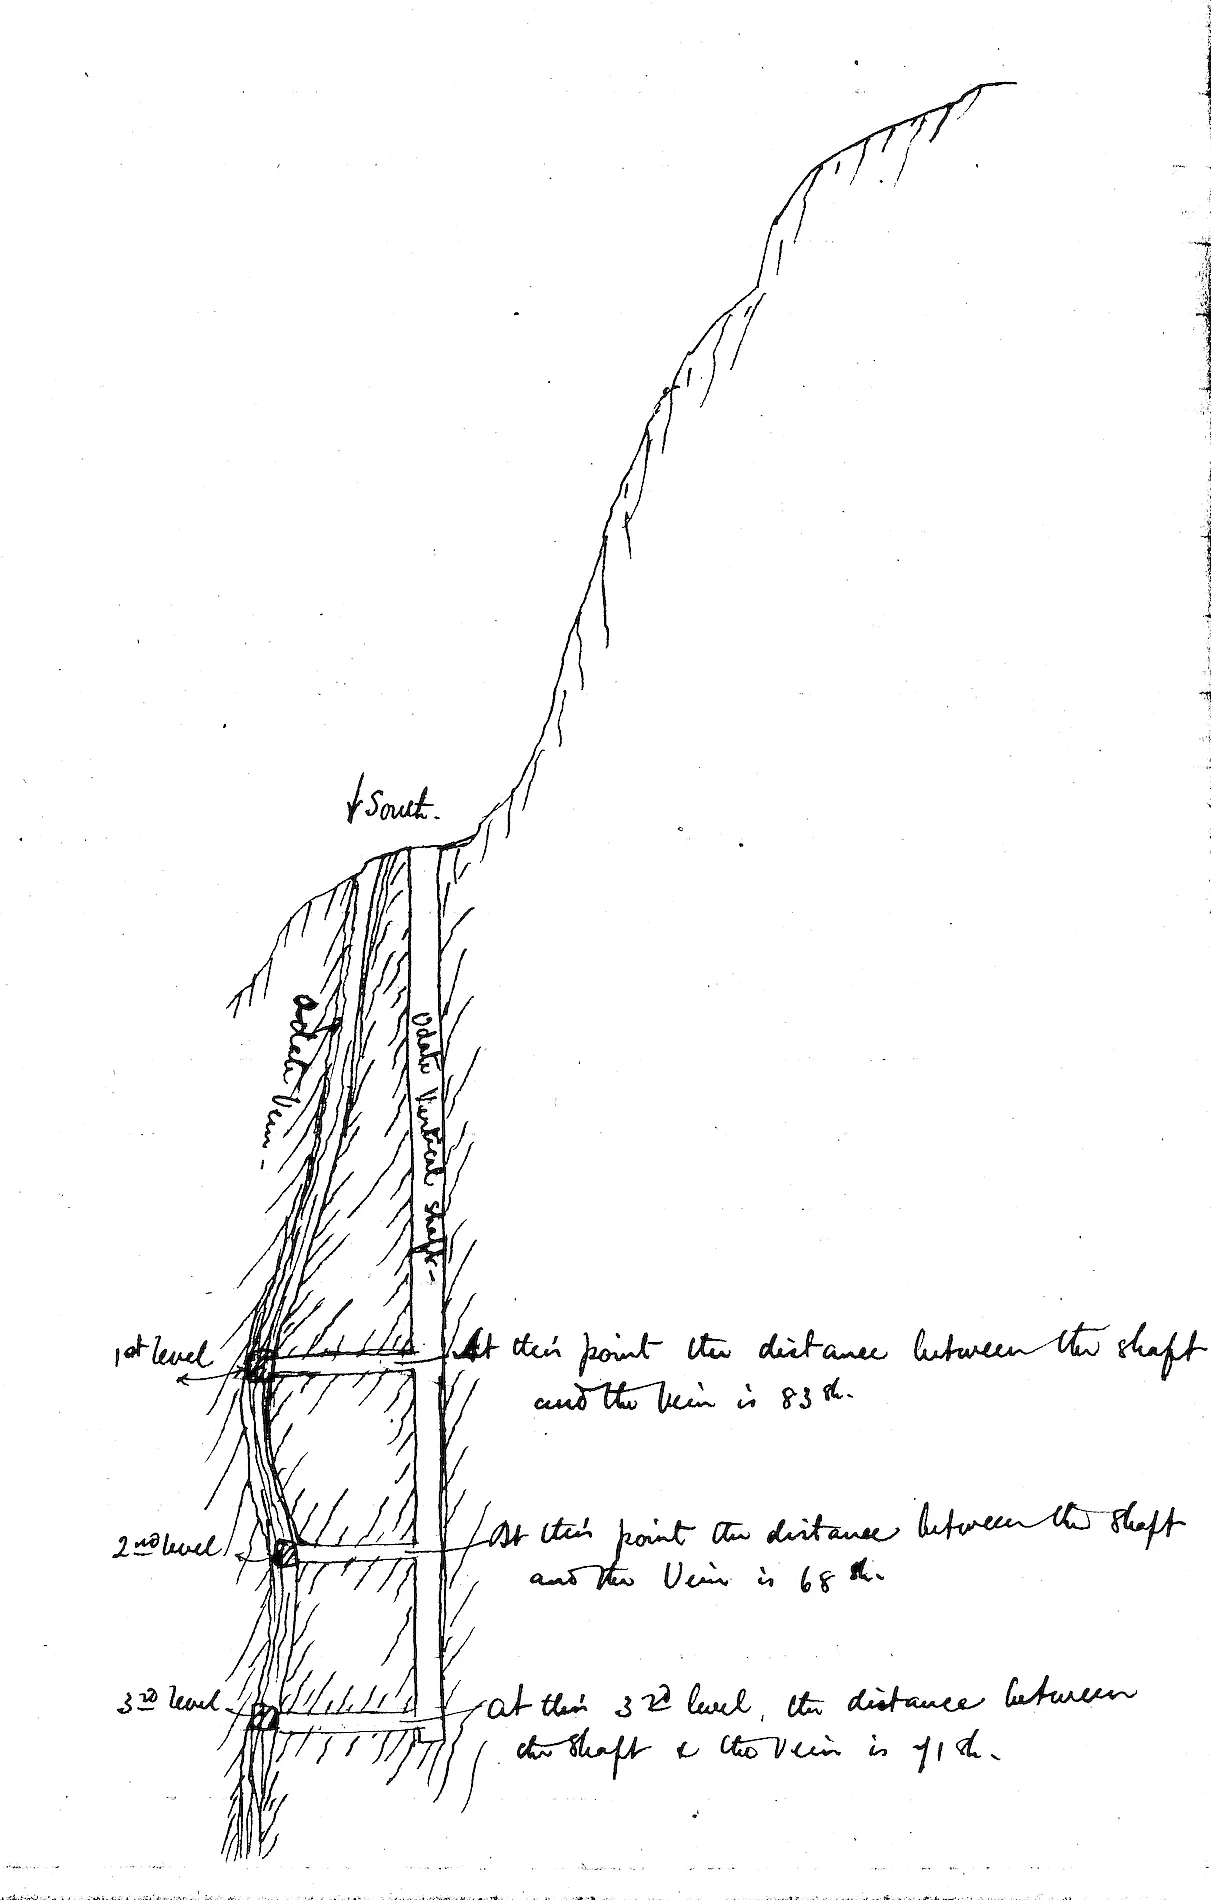 ↓ South.
Odate Vein.
Odate Vertical Shaft.
1st level
At this point the distance between the shaft
and the Vein is 83 sh.
2nd level
At this point the distance between the shaft
and the Vein is 68 sh.
3rd level
At this 3rd level, the distance between
the shaft & the Vein is 71 sh.